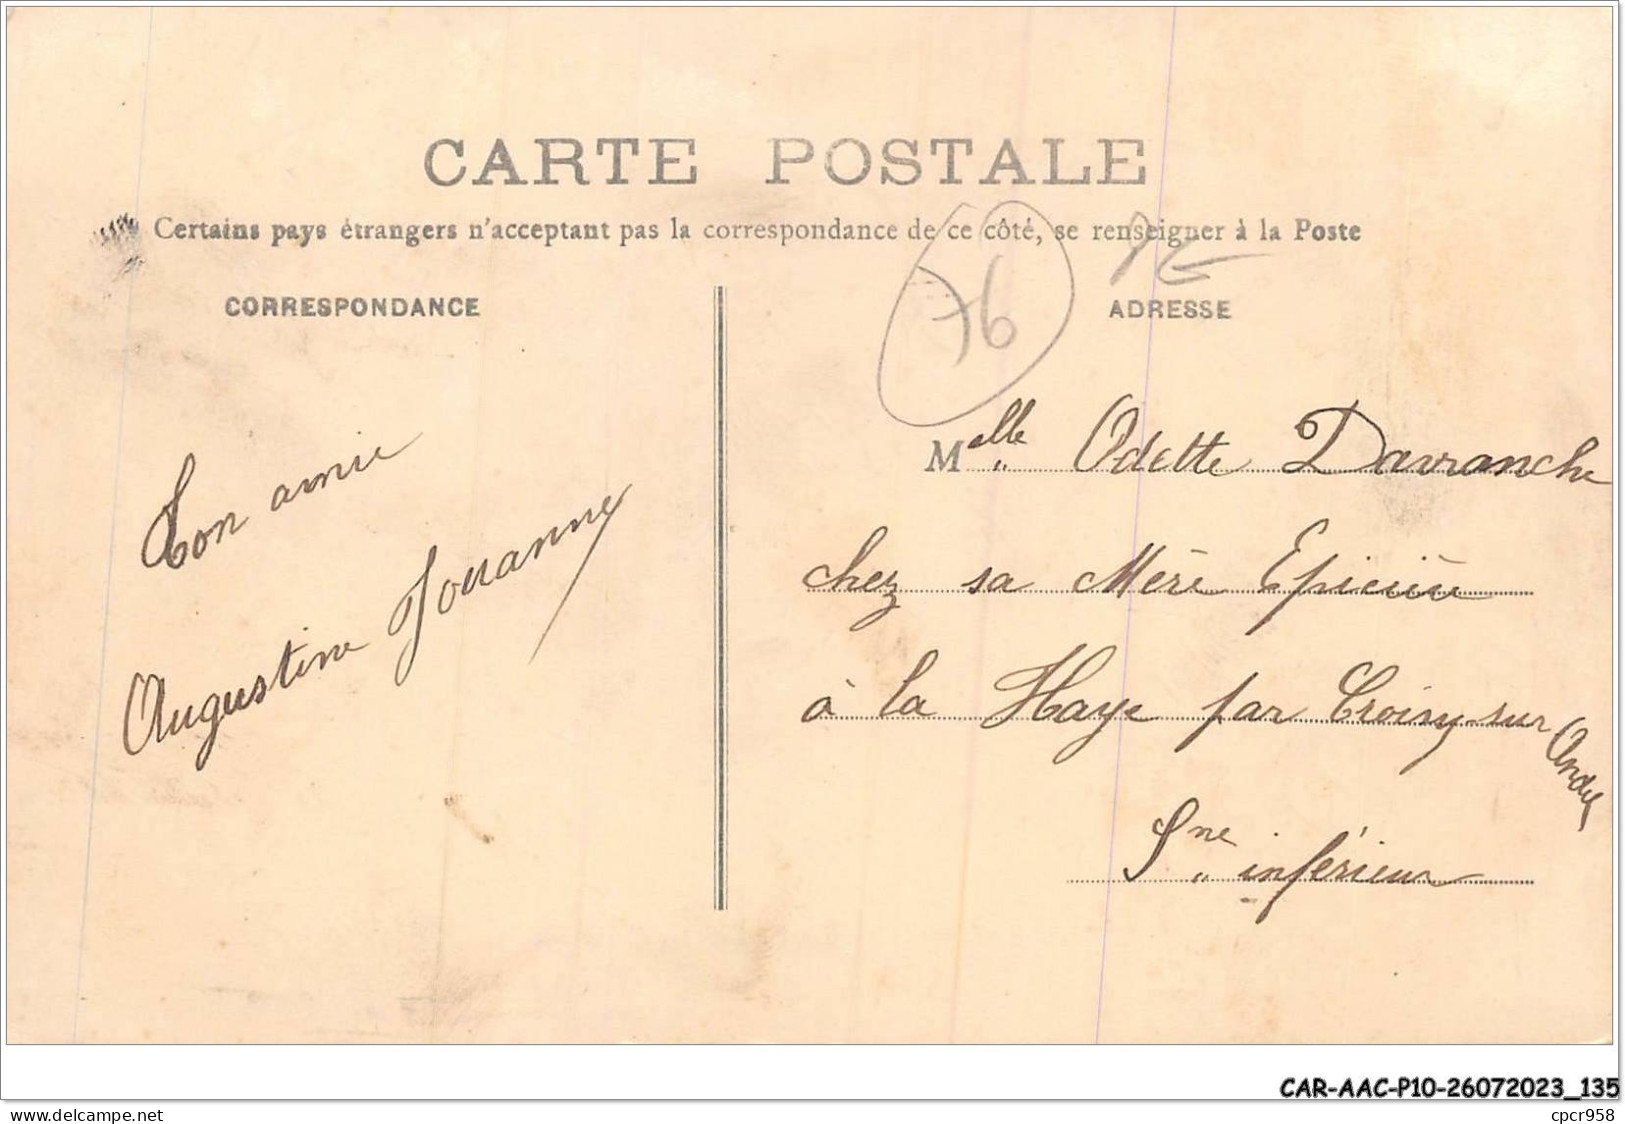 CARTE POSTALE
Certains pays étrangers n'acceptant pas la correspondance de ce côté, se renseigner à la Poste
CORRESPONDANCE
ADRESSE
76
Ton amie
Augustine Jouanne
Melle Odette Davranche
chez sa Mère Epicière
à la Haye par Croisy-sur
Andelle
Sne inférieur
CAR-AAC-P10-26072023_135
www.delcampe.net
cpcr958